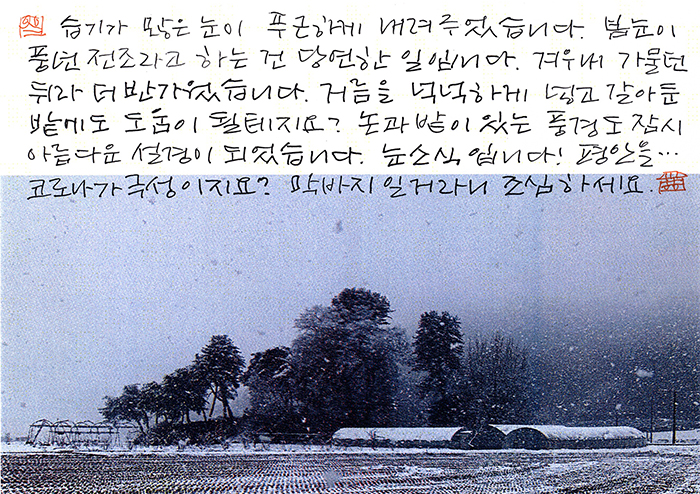 습기가 많은 눈이 푸근하게 내려주었습니다. 봄눈이
풍년 전조라고 하는 건 당연한 일입니다. 겨우내 가물던
뒤라 더 반가웠습니다. 거름을 넉넉하게 넣고 갈아둔
밭에도 도움이 될테지요? 논과 밭이 있는 풍경도 잠시
아름다운 설경이 되었습니다. 눈소식입니다! 평안을…
코로나가 극성이지요? 막바지일거라니 조심하세요.